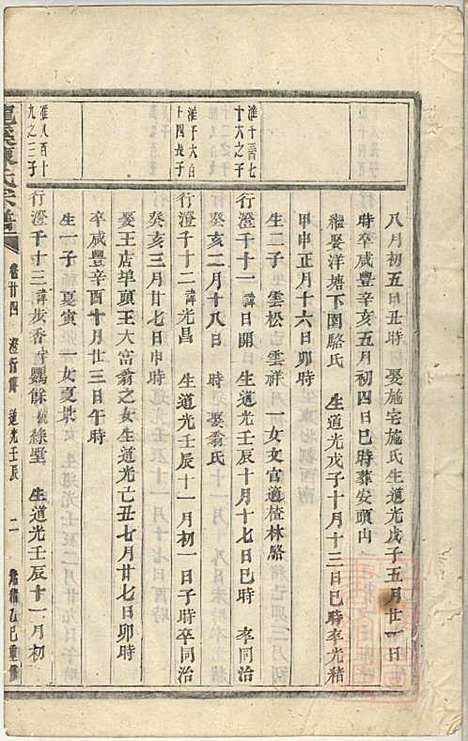 八月初五日丑時 娶施宅施氏生道光戊子五月廿一日
時卒咸豐辛亥五月初四日巳時葬安頭山
繼娶洋塘下園駱氏 生道光戊子十月十三日巳時卒光緒
甲申正月十六日卯時
生二子 雲松 雲祥 一女文官適楂林駱
淮千百七十六之子
行澄千十一諱日開 生道光壬辰十月十七日巳時 卒同治
癸亥二月十八日 時娶翁氏
淮千六百十四長子
行澄千十二諱光昌 生道光壬辰十一月初一日子時卒同治
癸亥三月廿七日申時
娶王店埠頭王大富翁之女生道光己丑七月廿七日卯時
卒咸豐辛酉十月廿三日午時
生一子 夏寅 一女夏
淮八百十九之三子
行澄千十三諱步香 號綠堂 生道光壬辰十一月初
陳氏宗譜
卷廿四 澄行傳 道光壬辰 二 光緒乙巳重修